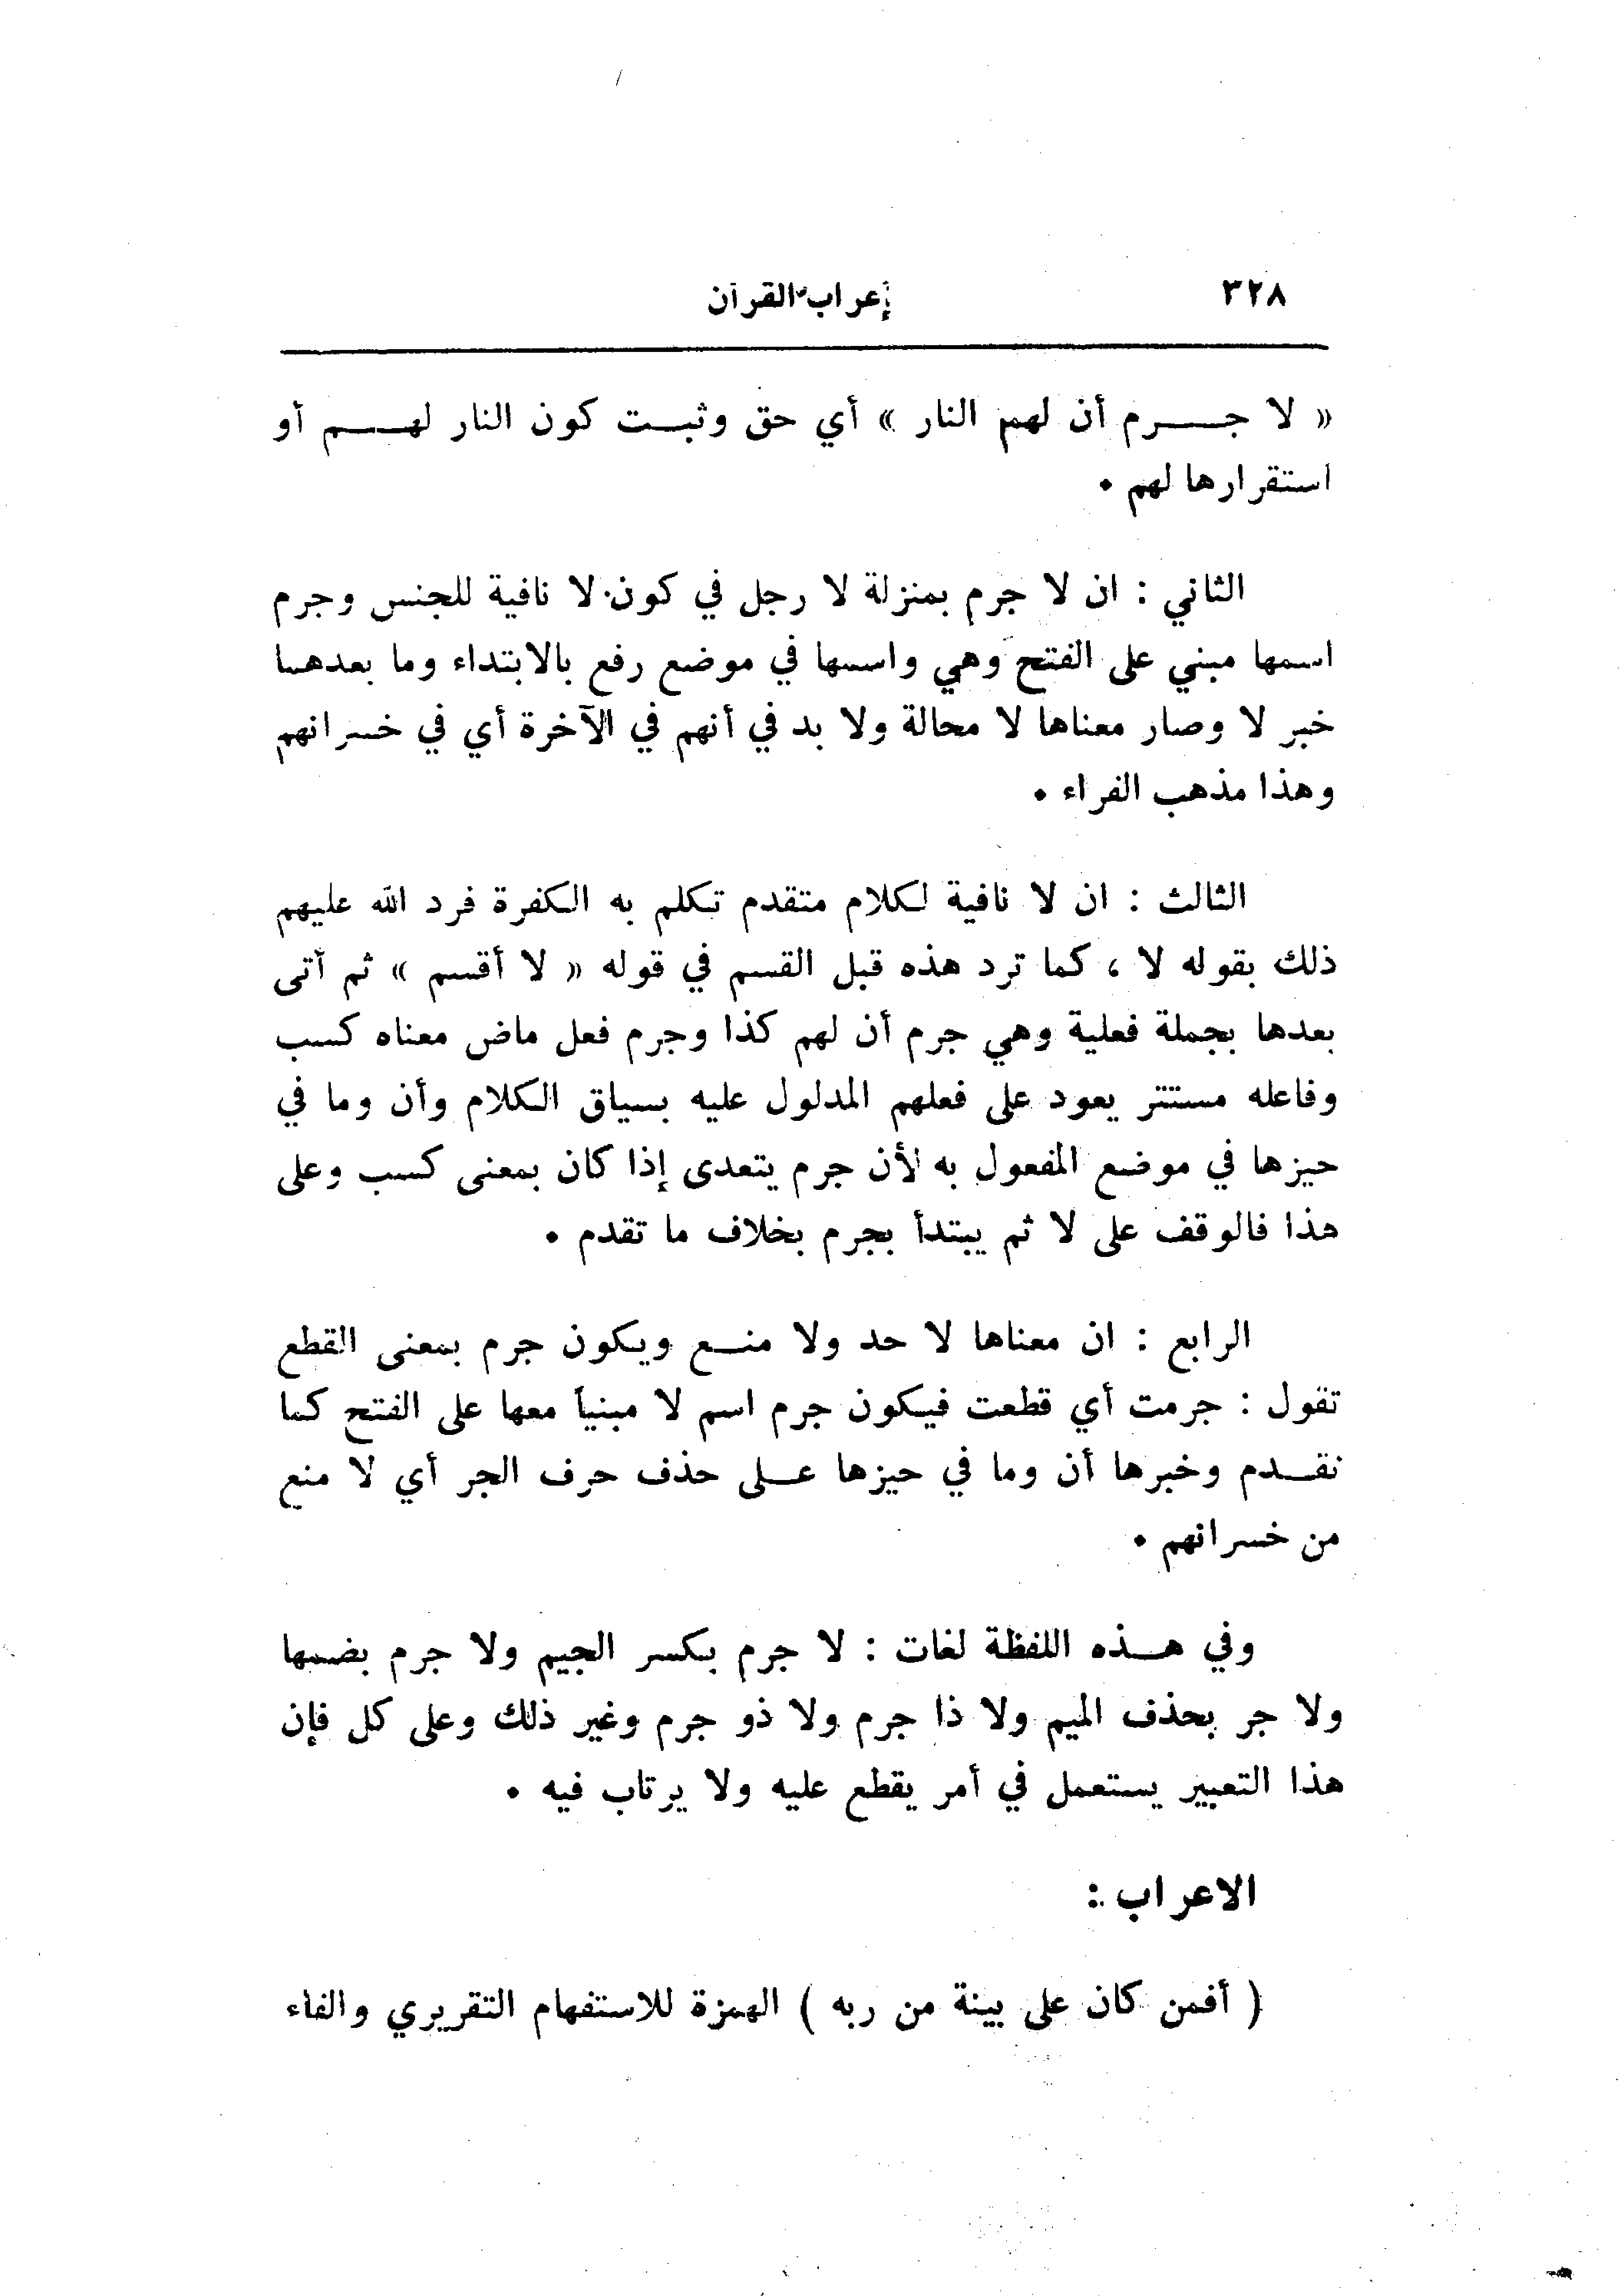 ٣٢٨ إعراب القرآن
« لا جرم أن لهم النار » أي حق وثبت كون النار لهم أو
استقرارها لهم .
الثاني : ان لا جرم بمنزلة لا رجل في كون لا نافية للجنس وجرم
اسمها مبني على الفتح وهي واسمها في موضع رفع بالابتداء وما بعدهما
خبر لا وصار معناها لا محالة ولا بد في أنهم في الآخرة أي في خسرانهم
وهذا مذهب الفراء .
الثالث : ان لا نافية لكلام متقدم تكلم به الكفرة فرد الله عليهم
ذلك بقوله لا ، كما ترد هذه قبل القسم في قوله « لا أقسم » ثم أتى
بعدها بجملة فعلية وهي جرم أن لهم كذا وجرم فعل ماض معناه كسب
وفاعله مستتر يعود على فعلهم المدلول عليه بسياق الكلام وأن وما في
حيزها في موضع المفعول به لأن جرم يتعدى إذا كان بمعنى كسب وعلى
هذا فالوقف على لا ثم يبتدأ بجرم بخلاف ما تقدم .
الرابع : ان معناها لا حد ولا منع ويكون جرم بمعنى القطع
تقول : جرمت أي قطعت فيكون جرم اسم لا مبنياً معها على الفتح كما
تقدم وخبرها أن وما في حيزها على حذف حرف الجر أي لا منع
من خسرانهم .
وفي هذه اللفظة لغات : لا جرم بكسر الجيم ولا جرم بضمها
ولا جر بحذف الميم ولا ذا جرم ولا ذو جرم وغير ذلك وعلى كل فإن
هذا التعبير يستعمل في أمر يقطع عليه ولا يرتاب فيه .
الاعراب :
( أفمن كان على بينة من ربه ) الهمزة للاستفهام التقريري والفاء